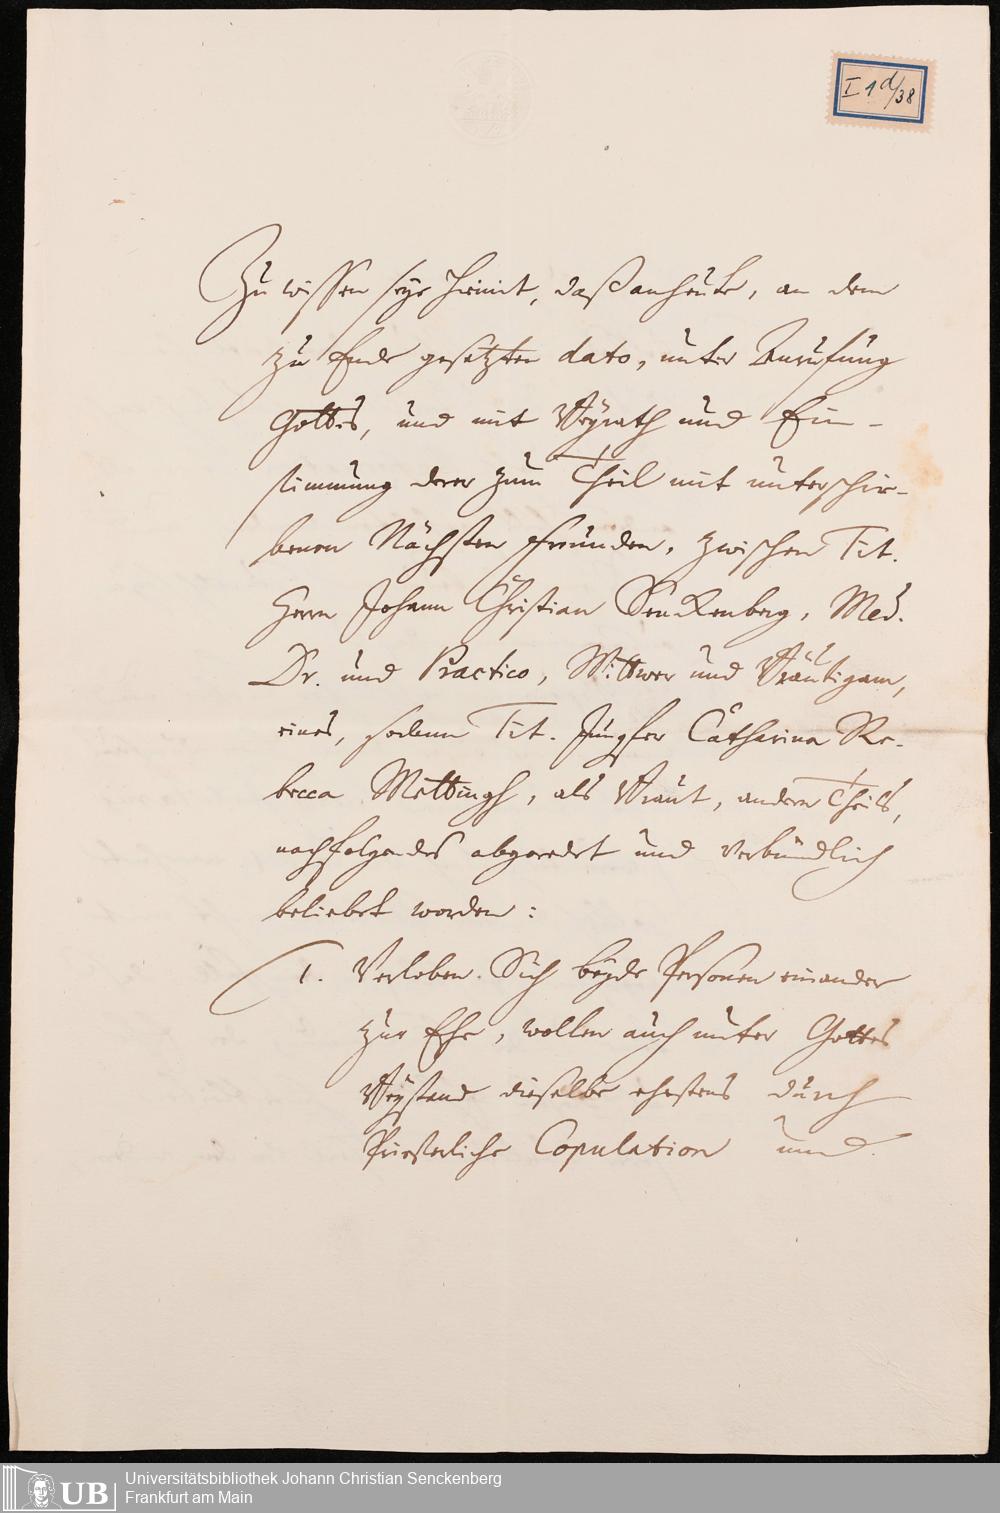 I 1 d/38
Zu wissen seye hiemit, daß anheute, an dem
zu Ende gesetzten dato, unter Anrufung
Gottes, und mit Beyrath und Ein-
stimmung derer zum Theil mit unterschrie-
benen Nächsten Freunden, zwischen Tit.
Herrn Johann Christian Senckenberg, Med.
Dr. und Practico, Wittwer und Bräutigam,
eines, sodann Tit. Jungfer Catharina Re-
becca Mettingh, als Braut, andern Theils,
nachfolgendes abgeredet und verbündlich
beliebet worden:
1. Verloben Sich beyde Personen einander
zur Ehe, wollen auch unter Gottes
Beystand dieselbe ehestens durch
Priesterliche Copulation und
UB
Universitätsbibliothek Johann Christian Senckenberg
Frankfurt am Main